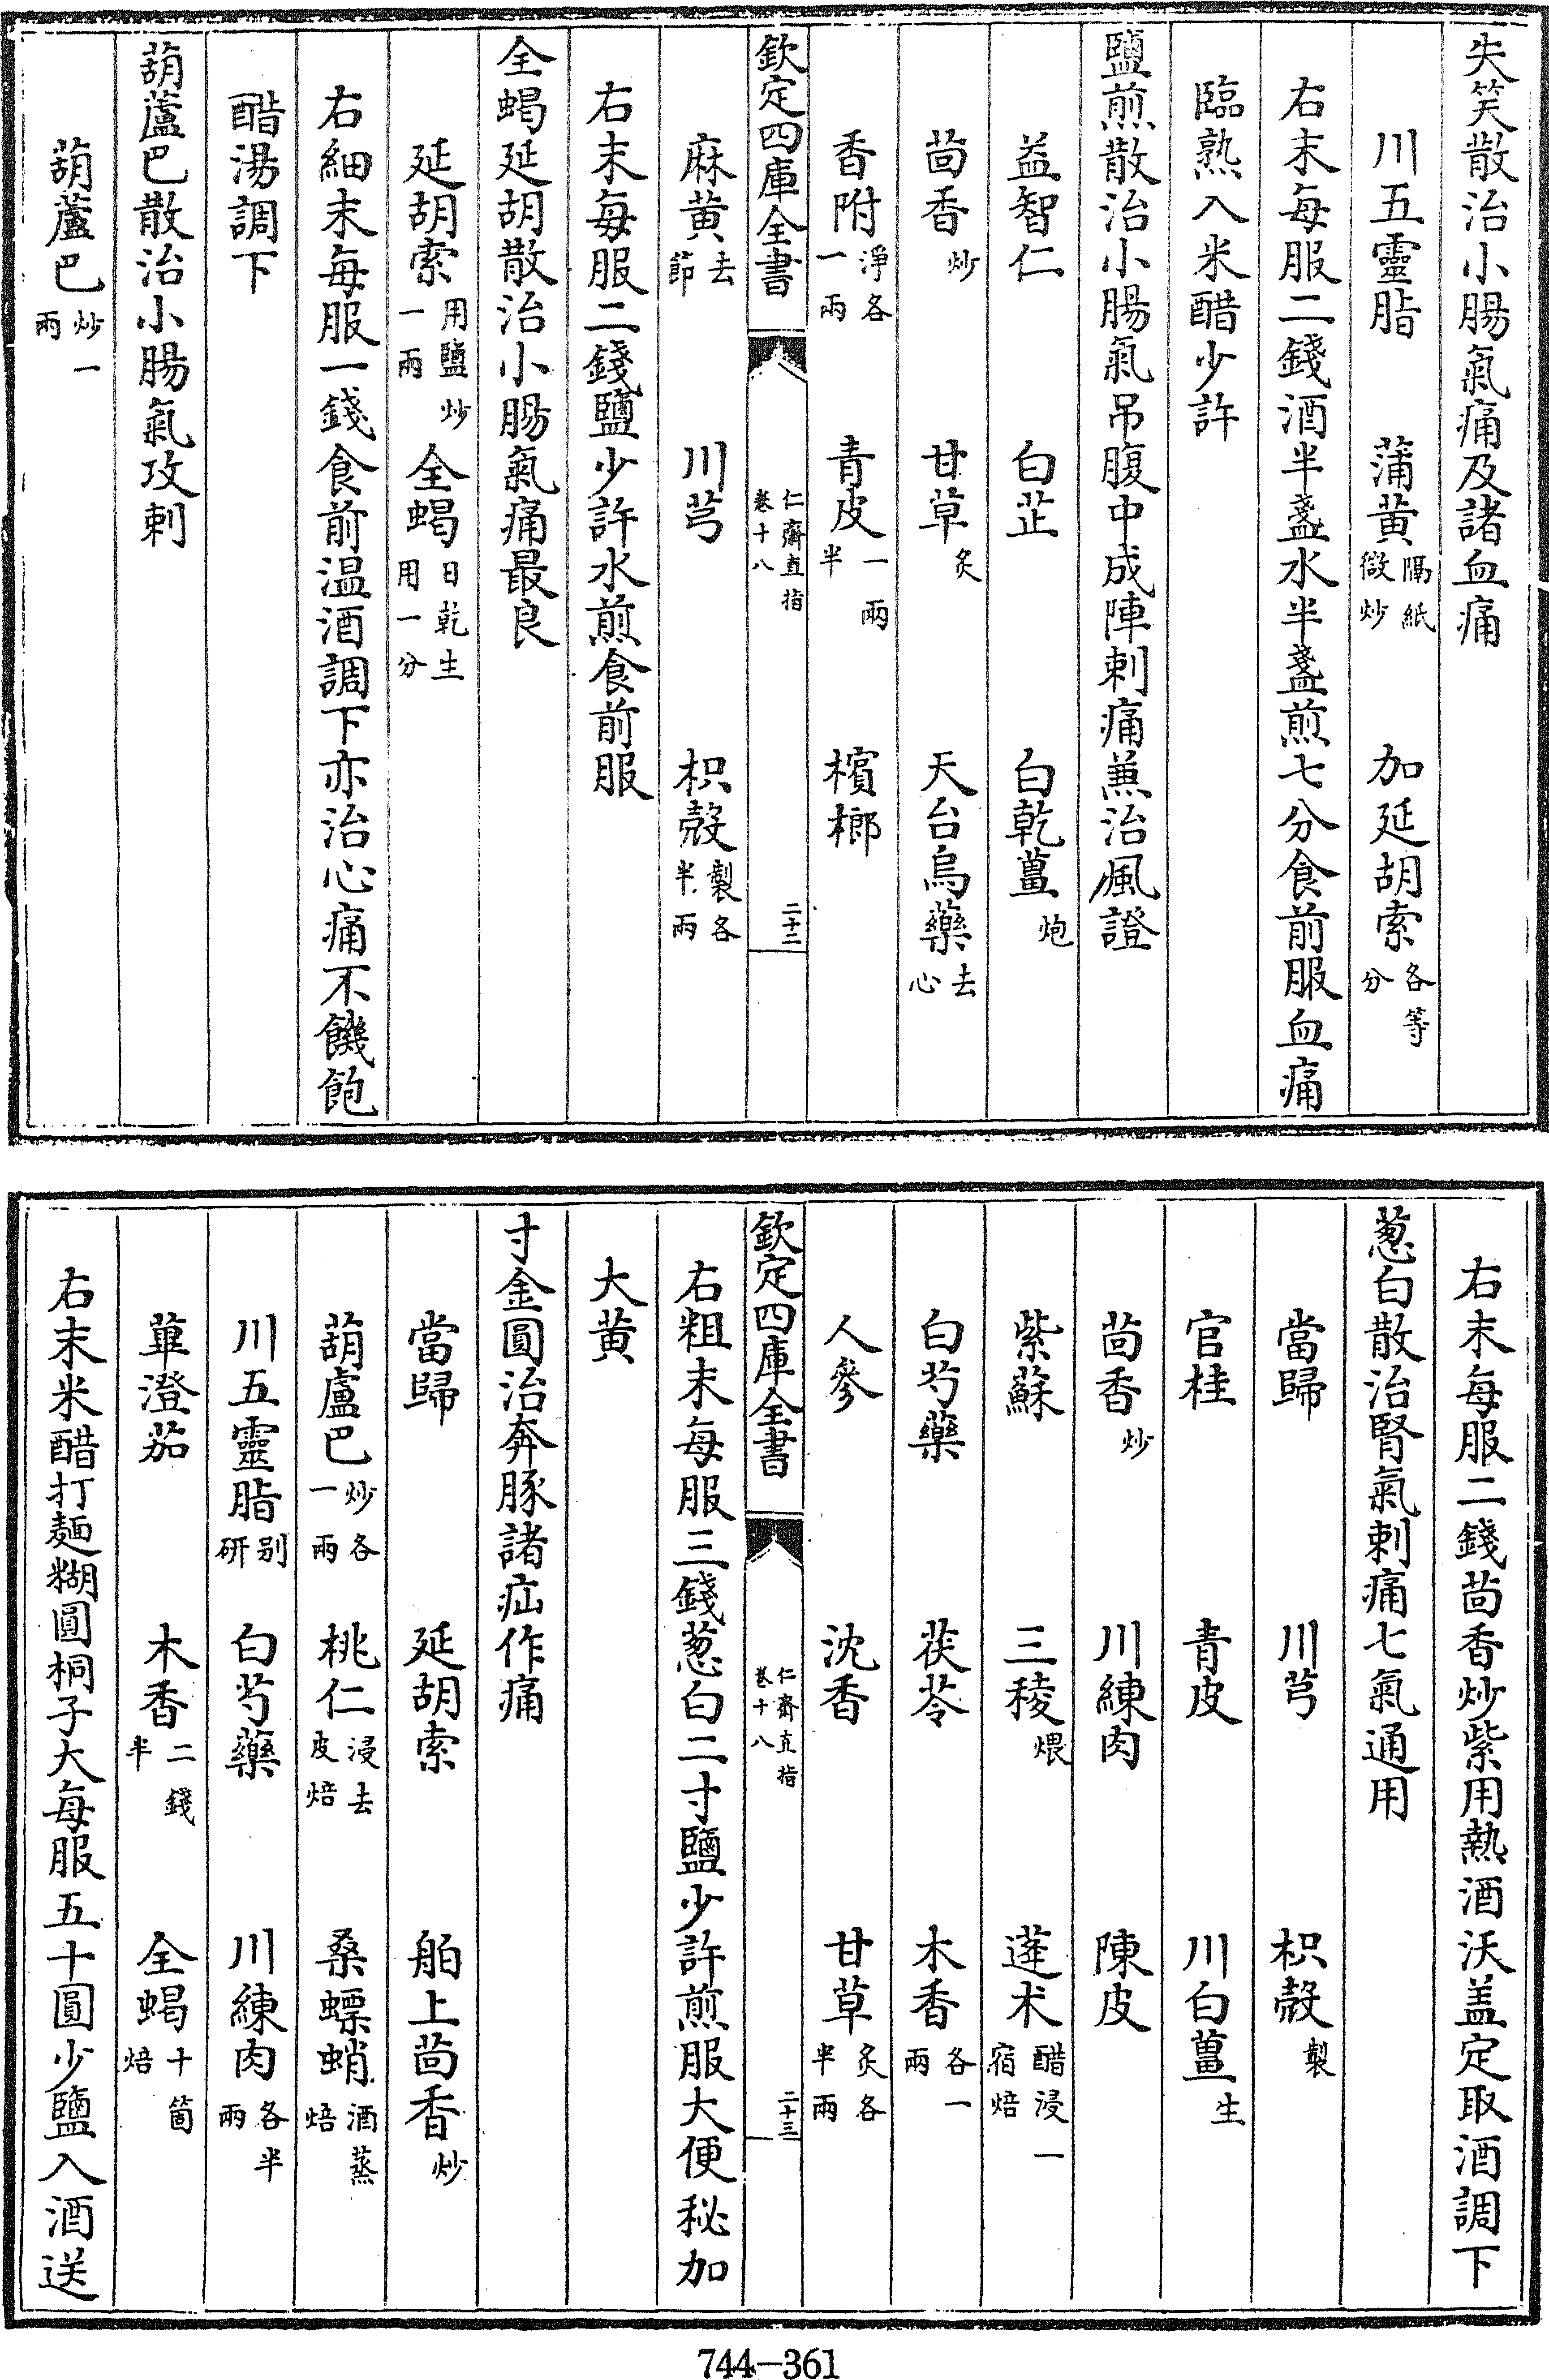 失笑散治小腸氣痛及諸血痛
川五靈脂 蒲黄隔紙微炒 加延胡索各等分
右末每服二錢酒半盞水半盞煎七分食前服血痛
臨熟入米醋少許
鹽煎散治小腸氣吊腹中成陣刺痛兼治風證
益智仁 白芷 白乾薑炮
茴香炒 甘草炙 天台烏藥去心
香附淨各一兩 青皮一兩半 檳榔
欽定四庫全書 仁齋直指卷十八 二十二
麻黄去節 川芎 枳殼製各半兩
右末每服二錢鹽少許水煎食前服
全蝎延胡散治小腸氣痛最良
延胡索用鹽炒一兩 全蝎日乾生用一分
右細末每服一錢食前温酒調下亦治心痛不饑飽
醋湯調下
葫蘆巴散治小腸氣攻刺
葫蘆巴炒一兩
右末每服二錢茴香炒紫用熱酒沃盖定取酒調下
葱白散治腎氣刺痛七氣通用
當歸 川芎 枳殼製
官桂 青皮 川白薑生
茴香炒 川練肉 陳皮
紫蘇 三稜煨 蓬术醋浸一宿焙
白芍藥 茯苓 木香各一兩
人參 沈香 甘草炙各半兩
欽定四庫全書 仁齋直指卷十八 二十三
右粗末每服三錢葱白二寸鹽少許煎服大便秘加
大黄
寸金圓治奔豚諸疝作痛
當歸 延胡索 舶上茴香炒
葫蘆巴炒各一兩 桃仁浸去皮焙 桑螵蛸酒蒸焙
川五靈脂别研 白芍藥 川練肉各半兩
蓽澄茄 木香二錢半 全蝎十箇焙
右末米醋打麵糊圓桐子大每服五十圓少鹽入酒送
744-361